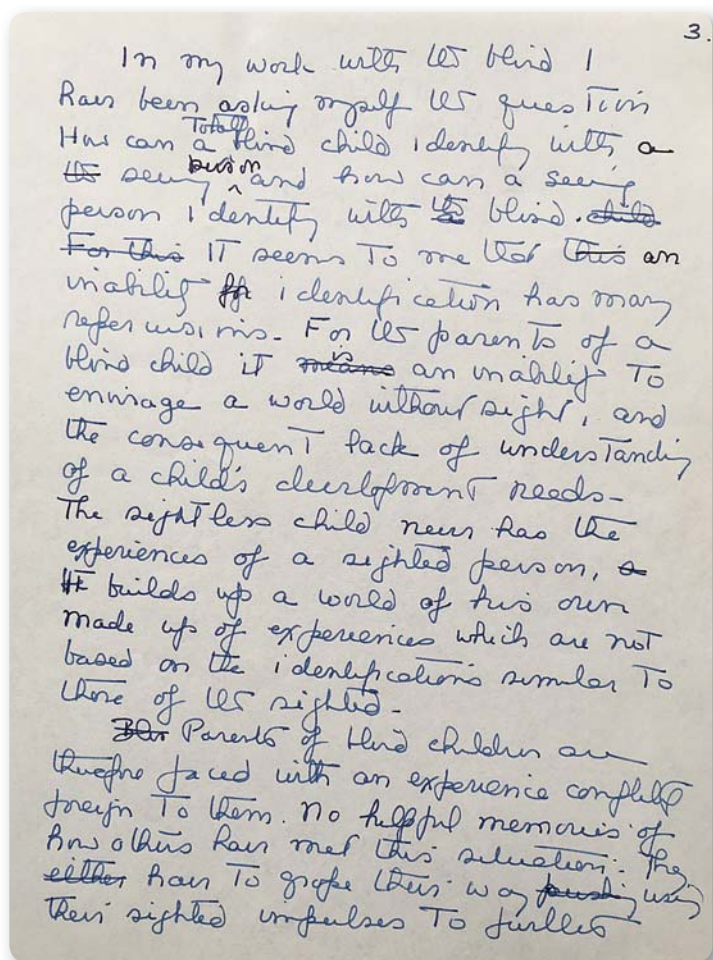 3.
In my work with the blind I
have been asking myself the question
How can a Totally blind child identify with a
the seeing person and how can a seeing
person identify with a the blind. child
For this IT seems To me that this an
inability identification has many
repercussions. For the parents of a
blind child it means is an inability To
envisage a world without sight, and
the consequent lack of understanding
of a child's development needs-
The sightless child never has the
experiences of a sighted person, a
It builds up a world of his own
made up of experiences which are not
based on the identifications similar To
those of the sighted-
But Parents of blind children are
therefore faced with an experience completely
foreign To them. No helpful memories of
how others have met this situation. They
either have To grope their way using
their sighted impulses To further